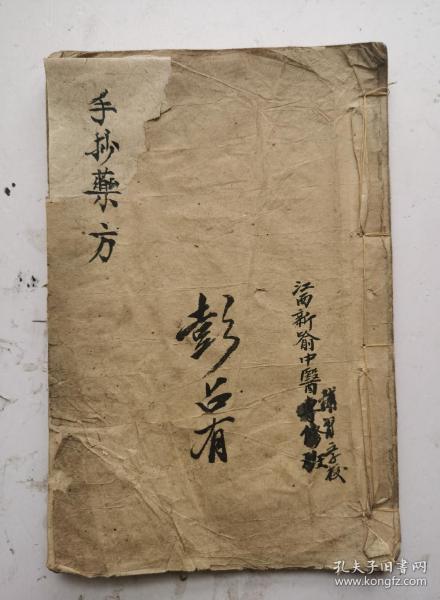 手抄藥方
彭占有
江西新喻中醫
講習学校
孔夫子旧书网
www.kongfz.com